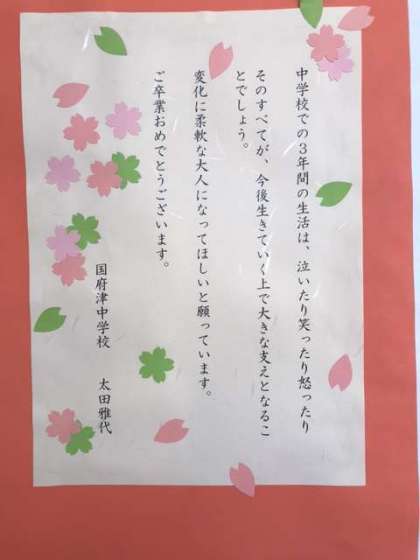 中学校での３年間の生活は、泣いたり笑ったり怒ったり
そのすべてが、今後生きていく上で大きな支えとなるこ
とでしょう。
変化に柔軟な大人になってほしいと願っています。
ご卒業おめでとうございます。
国府津中学校　太田雅代